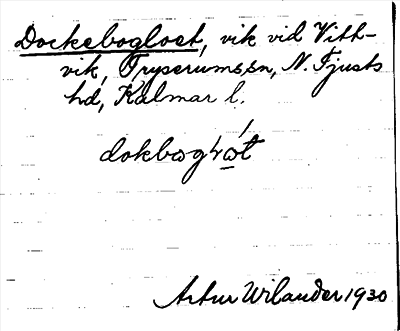 Dockebogloet, vik vid Vith-
vik, Tryserums sn, N. Tjusts
hd, Kalmar l.
Artur Wilander 1930